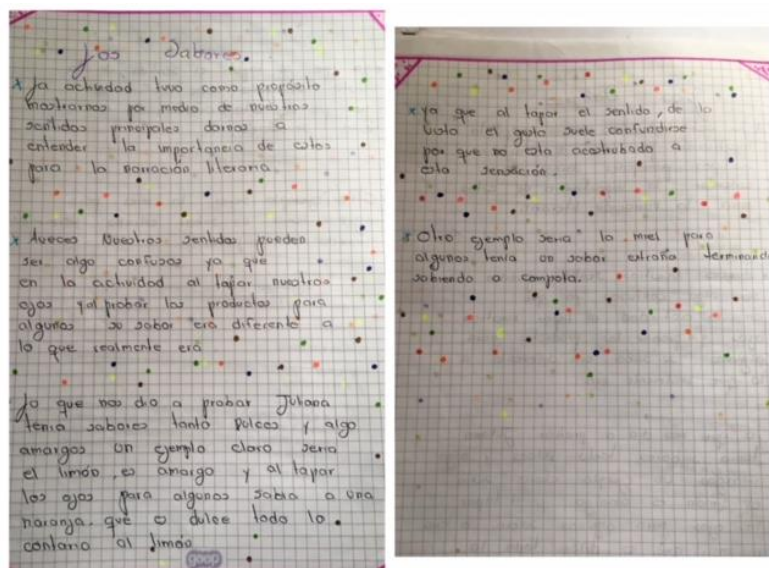 Los Sabores.
* La actividad tuvo como propósito
mostrarnos por medio de nuestros
sentidos principales darnos a
entender la importancia de estos
para la narración literaria.
* Aveces Nuestros sentidos pueden
ser algo confusos ya que
en la actividad al tapar nuestros
ojos y al probar los productos para
algunos su sabor era diferente a
lo que realmente era
Lo que nos dio a probar Juliana
tenia sabores tanto Dulces y algo
amargos un ejemplo claro seria
el limón, es amargo y al tapar
los ojos para algunos sabia a una
naranja. que es dulce todo lo
contario al limón
goop
* Ya que al tapar el sentido, de la
vista el gusto suele confundirse
por que no esta acostubado a
esta sensación.
* Otro ejemplo seria la miel para
algunos tenia un sabor extraño terminando
sabiendo a compota.